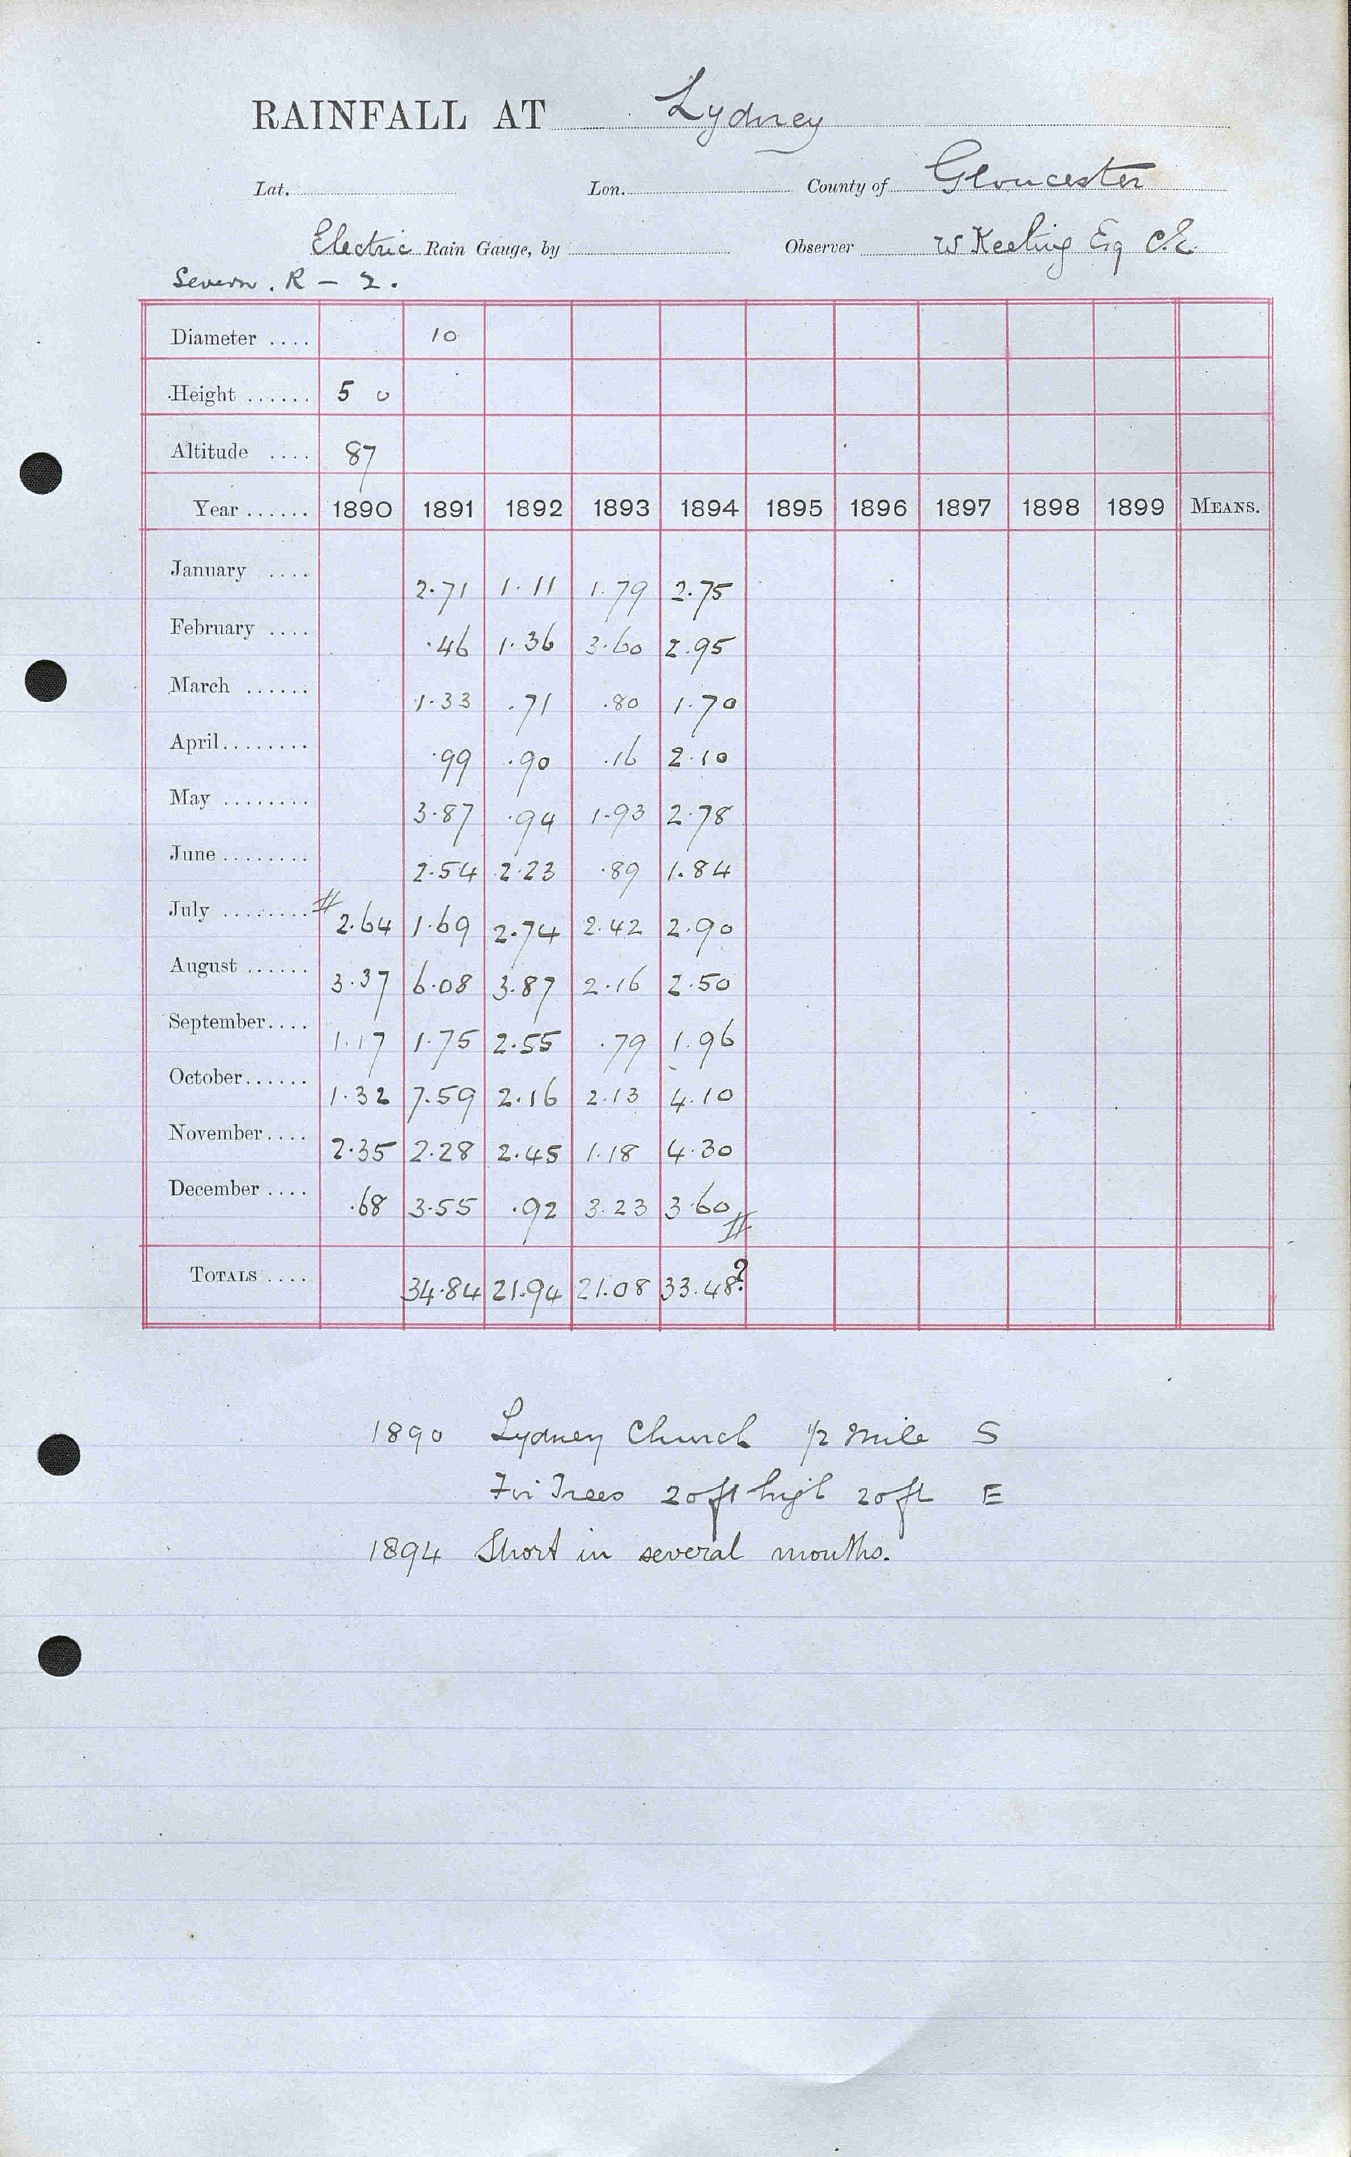 RAINFALL AT Lydney
Lat. Lon. County of Gloucester
Electric Rain Gauge, by Observer W Keeling Esq C.E.
Severn. R – 2.
Diameter .... 10
Height ...... 5 0
Altitude .... 87
Year ...... 1890 1891 1892 1893 1894 1895 1896 1897 1898 1899 MEANS.
January .... 2.71 1.11 1.79 2.75
February .... .46 1.36 3.60 2.95
March ...... 1.33 .71 .80 1.70
April........ .99 .90 .16 2.10
May ........ 3.87 .94 1.93 2.78
June ........ 2.54 2.23 .89 1.84
July ........ # 2.64 1.69 2.74 2.42 2.90
August ...... 3.37 6.08 3.87 2.16 2.50
September.... 1.17 1.75 2.55 .79 1.96
October...... 1.32 7.59 2.16 2.13 4.10
November.... 2.35 2.28 2.45 1.18 4.30
December .... .68 3.55 .92 3.23 3.60 #
TOTALS .... 34.84 21.94 21.08 33.48?
1890 Lydney Church 1/2 Mile S
Fir Trees 20ft high 20ft E
1894 Short in several months.